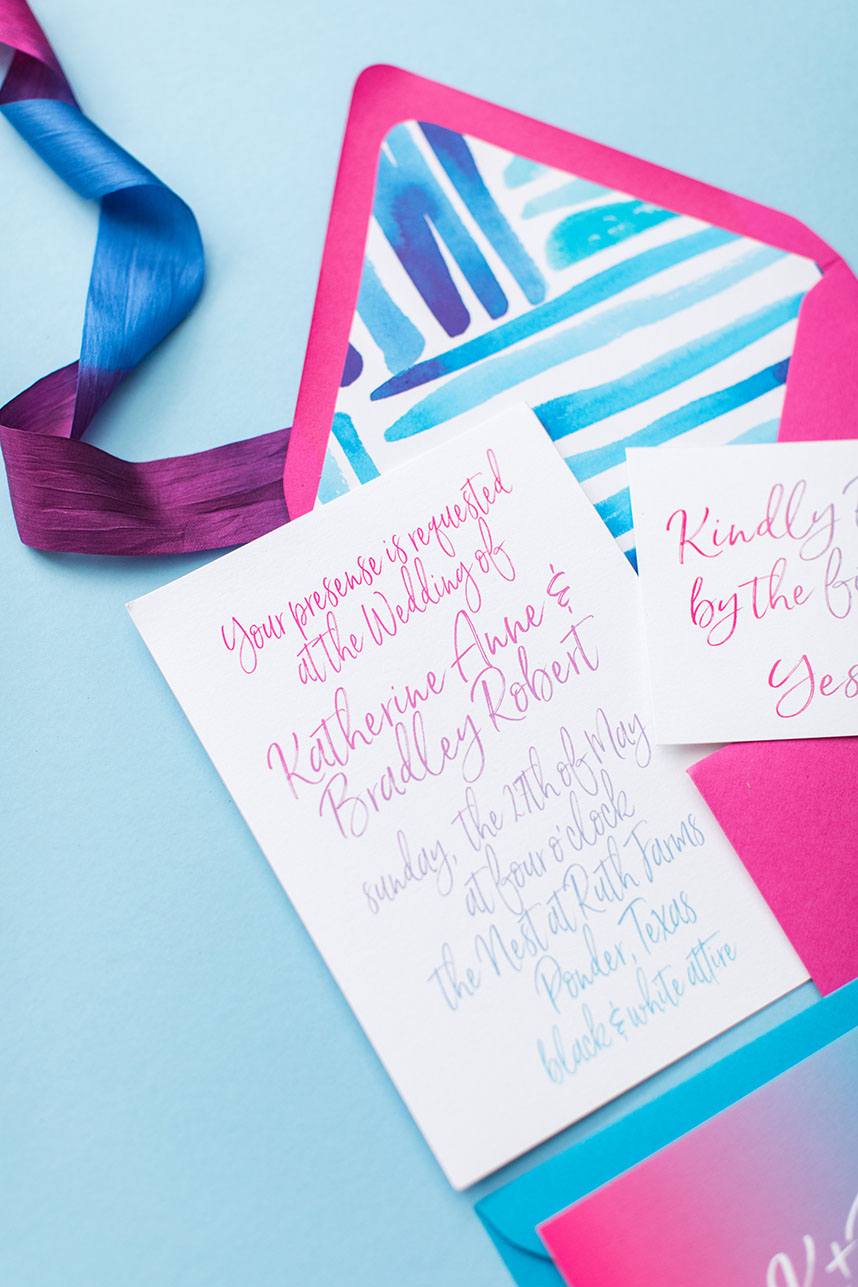 Your presense is requested
at the Wedding of
Katherine Anne &
Bradley Robert
sunday, the 27th of May
at four o'clock
the Nest at Ruth Farms
Ponder, Texas
black & white attire
Kindly
by the
Yes
K+